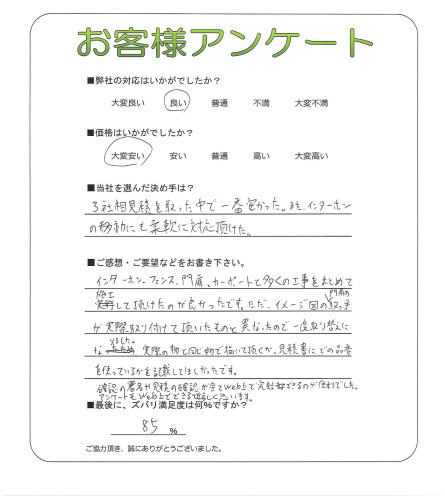 お客様アンケート
■弊社の対応はいかがでしたか?
大変良い 良い 普通 不満 大変不満
■価格はいかがでしたか?
大変安い 安い 普通 高い 大変高い
■当社を選んだ決め手は?
3社相見積を取った中で一番安かった。また、インターホン
の移動にも柔軟に対応頂けた。
■ご感想・ご要望などをお書き下さい。
インターホン、フェンス、門扉、カーポートと多くの工事をまとめて
施工 門扉の
して頂けたのが良かったです。ただ、イメージ図の取っ手
が実際取り付けて頂いたものと異なったので一度取り替えに
なりました。
実際の物と同じ物で描いて頂くか、見積書にどの品番
を使っているかを記載してほしかったです。
確認の署名や見積の確認が全てweb上で完結できるのが便利でした。
アンケートもWeb上でできると嬉しいです。
■最後に、ズバリ満足度は何%ですか?
85 %
ご協力頂き、誠にありがとうございました。